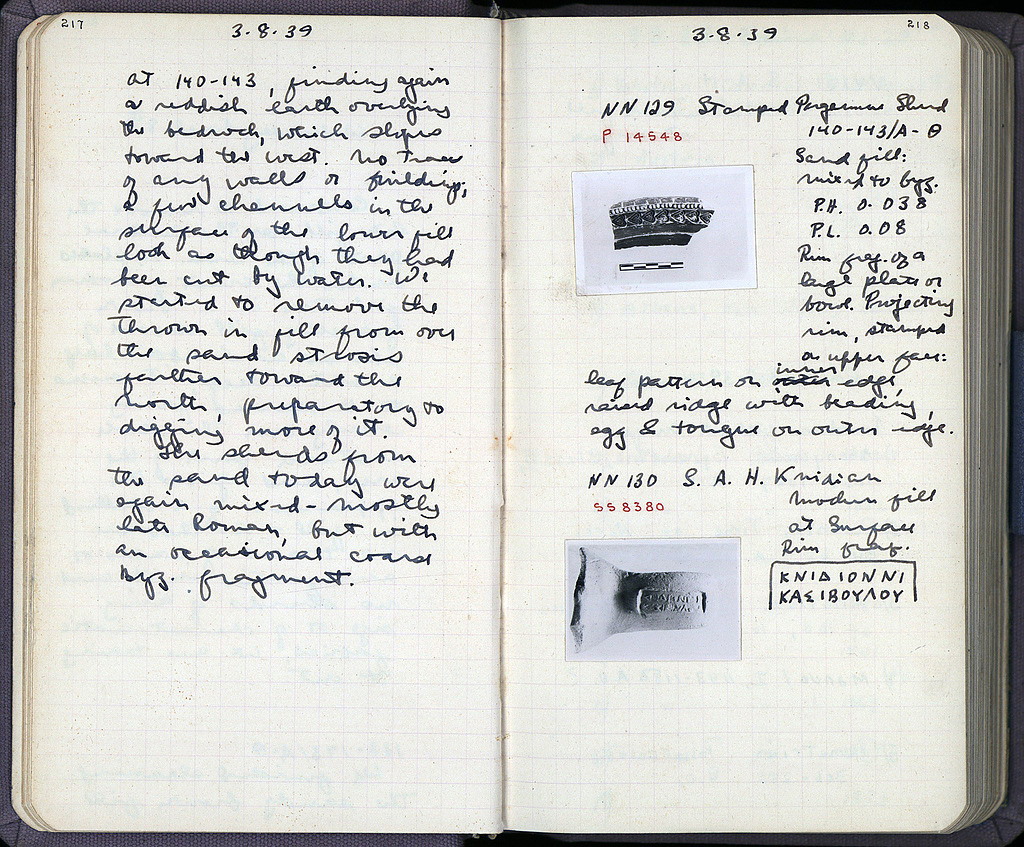 217
3·8·39
at 140-143, finding again
a reddish earth overlying
the bedrock, which slopes
toward the west. No trace
of any walls or buildings;
a few channels in the
surface of the lower fill
look as though they had
been cut by water. We
started to remove the
thrown in fill from over
the sand strosis
farther toward the
north, preparatory to
digging more of it.
The sherds from
the sand today were
again mixed - mostly
late Roman, but with
an occasional coarse
Byz. fragment.
218
3·8·39
NN 129 Stamped Pergamene Sherd
P 14548
140-143/A-Θ
Sand fill:
mixed to byz.
P.H. 0.038
P.L. 0.08
Rim frag. of a
large plate or
bowl. Projecting
rim, stamped
on upper face:
leaf pattern on outer inner edge,
raised ridge with beading,
egg & tongue on outer edge.
NN 130 S. A. H. Knidian
SS 8380
Modern fill
at Surface
Rim frag.
ΚΝΙΔΙΟΝΝΙ
ΚΑΣΙΒΟΥΛΟΥ